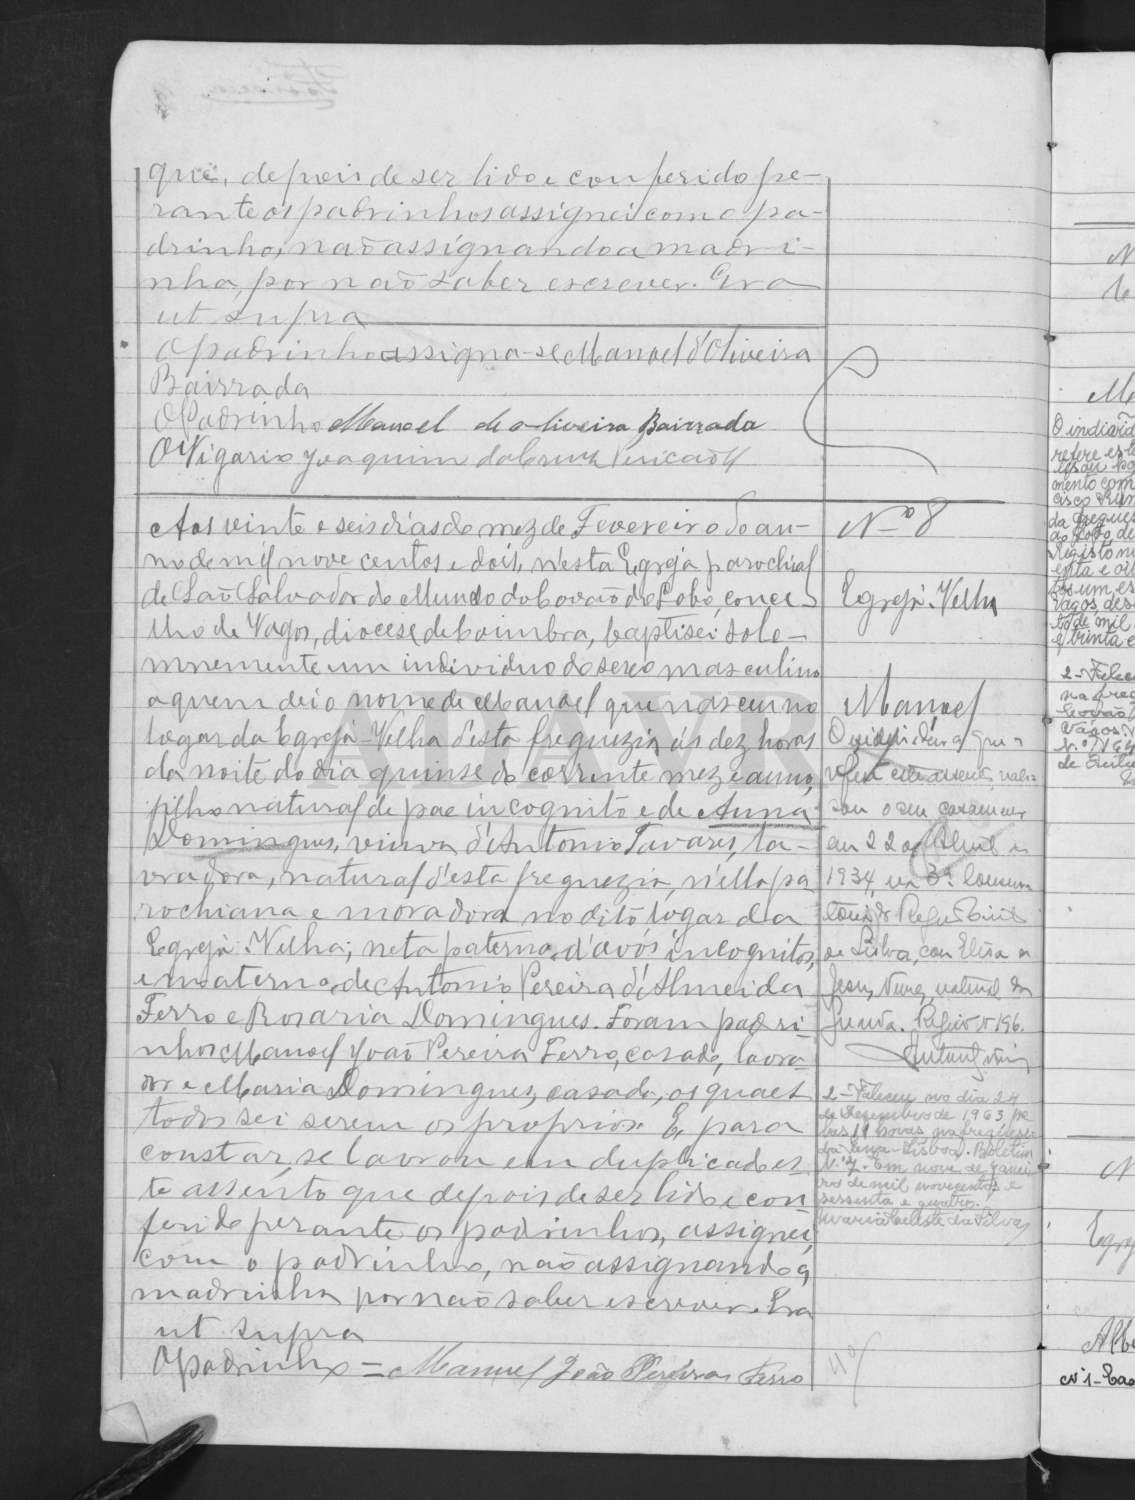 que, depois de ser lido e conferido pe-
rante os padrinhos assignei com o pa-
drinho, não assignando a madri-
nha, por não saber escrever. Era
ut supra
O padrinho assigna-se Manoel d'Oliveira
Bairrada
O Padrinho Manoel de oliveira Bairrada
O Vigario Joaquim da Cruz
Aos vinte e seis dias do mez de Fevereiro do an-
no de mil nove centos e dois, n'esta Egreja parochial
de São Salvador do Mundo do Covão do Lobo, conce-
lho de Vagos, diocese de Coimbra, baptisei sole-
mnemente um individuo do sexo masculino
a quem dei o nome de Manoel que nasceu no
logar da Egreja-Velha d'esta freguezia ás dez horas
da noite do dia quinse do corrente mez e anno,
filho natural de pae incognito e de Anna
Domingues, viuva d'Antonio Tavares, la-
vradora, natural d'esta freguezia, n'ella pa
rochiana e moradora no dito logar da
Egreja-Velha; neto paterno d'avós incognitos,
e materno de Antonio Pereira d'Almeida
Ferro e Rosaria Domingues. Foram padri
nhos Manoel João Pereira Ferro, casado, lavra-
dor e Maria Domingues, casada, os quaes
todos sei serem os proprios. E, para
constar, se lavrou em duplicado es
te assento que depois de ser lido e con
ferido perante os padrinhos, assignei,
com o padrinho, não assignando a
madrinha por não saber escrever. Era
ut supra
O padrinho = Manuel João Pereira Ferro
Nº 8
Egreja-Velha
Manoel
O individuo a que
refere este assento, reali-
sou o seu casamento
em 22 de Abril de
1934, na 3ª Conserva
toria do Registo Civil
de Lisboa, com Elisa de
Jesus Nunes, natural da
Guarda. Registo nº 196.
2-Faleceu no dia 24
de Dezembro de 1963 pe
las 11 horas na freguesia
da Lisboa. Boletim
N.º 7. Em nove de Janei
ro de mil novecentos e
sessenta e quatro.
Maria Celeste da Silva
ADAVR
O individ
refere este
mento com
da fregues
do Lobo, de
Registo
Vagos, des
to de mil
e trinta e
2-Falec
na freg
Covão
Vagos.
Egrej